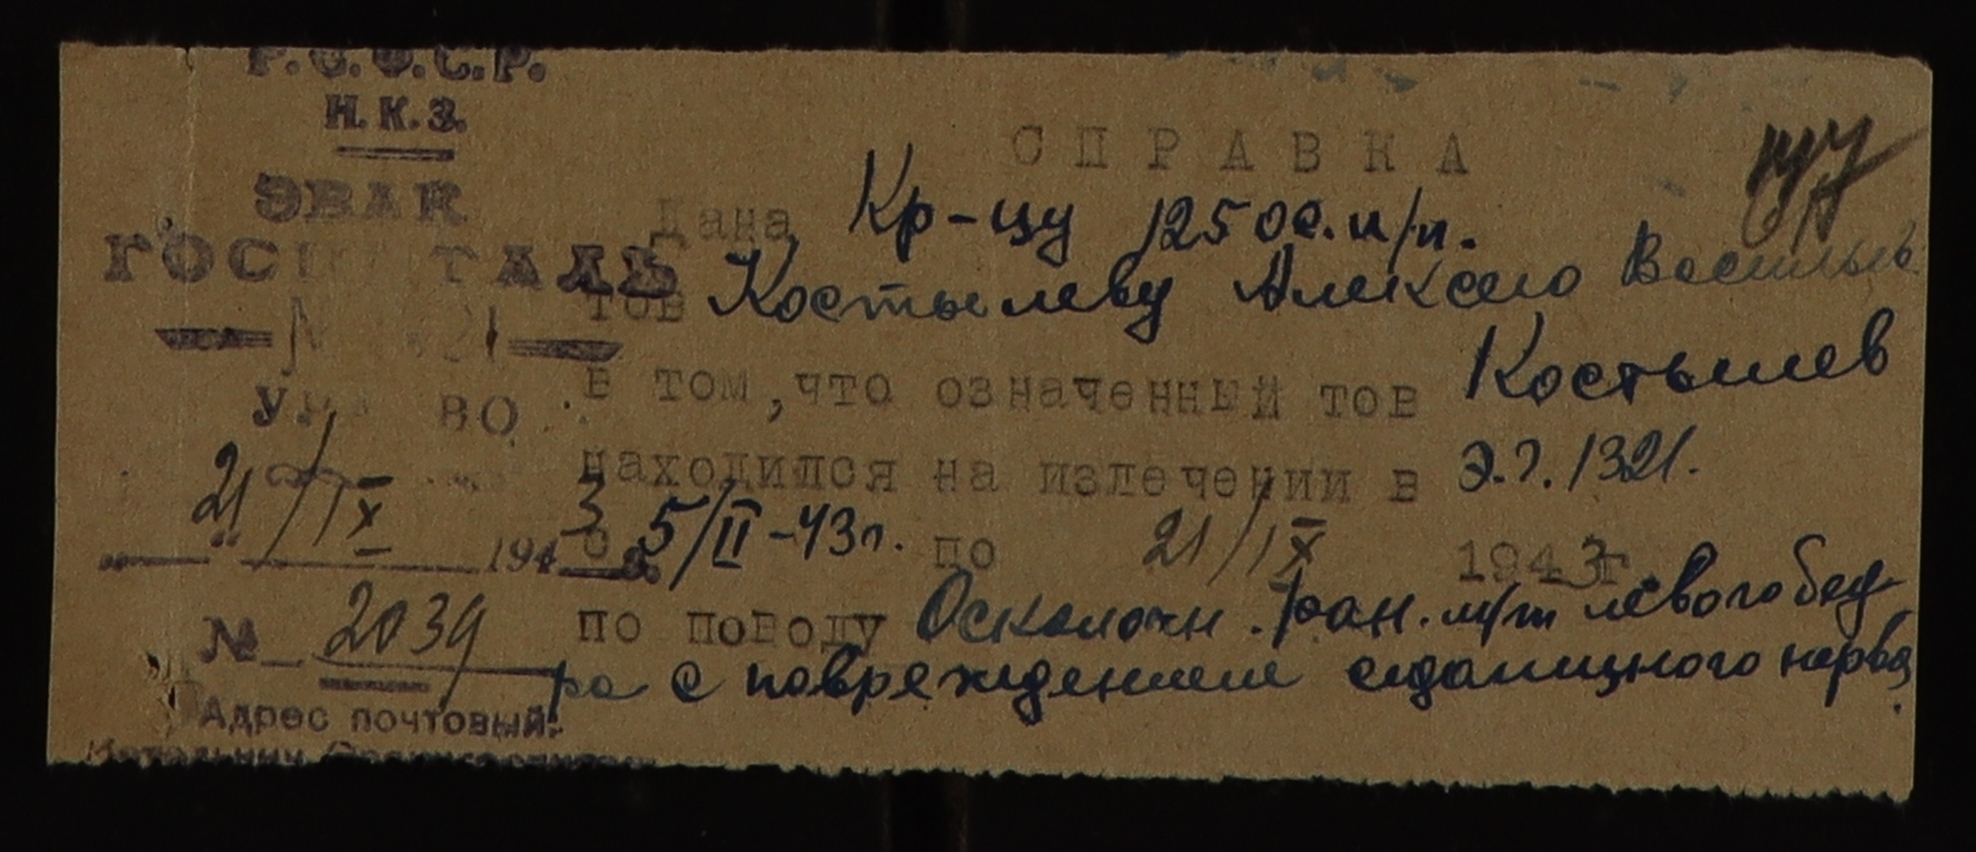 Р.С.Ф.С.Р.
Н.К.З.
ЭВАК
ГОСПИТАЛЬ
УрВО
21/IX 1943
№ 2039
Адрес почтовый:
СПРАВКА
Дана Кр-цу 125 ос. п/п.
тов Костылеву Алексею Васильев
в том, что означенный тов Костылев
находился на излечении в Э.Г. 1321.
с 5/II-43г. по 21/IX 1943г.
по поводу Осколочн. ран. м/т левого бед-
ра с повреждением седалищного нерва.